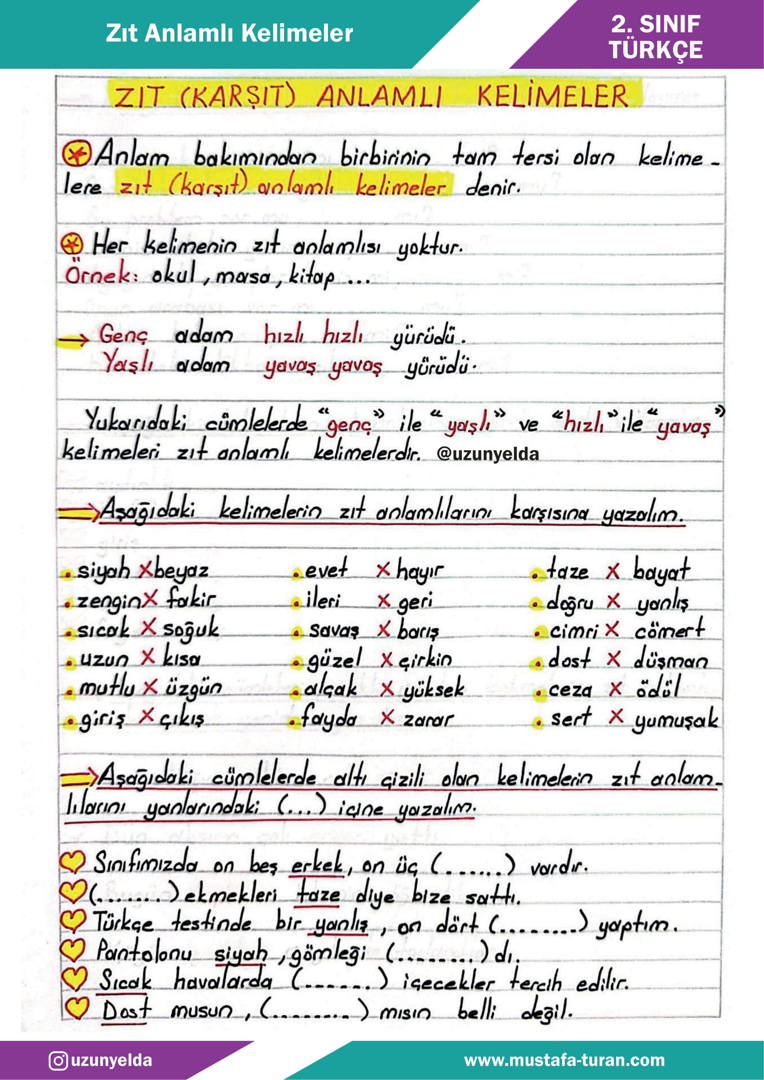 Zıt Anlamlı Kelimeler
2. SINIF
TÜRKÇE
ZIT (KARŞIT) ANLAMLI KELİMELER
Anlam bakımından birbirinin tam tersi olan kelime-
lere zıt (karşıt) anlamlı kelimeler denir.
Her kelimenin zıt anlamlısı yoktur.
Örnek: okul, masa, kitap ...
→ Genç adam hızlı hızlı yürüdü.
Yaşlı adam yavaş yavaş yürüdü.
Yukarıdaki cümlelerde "genç" ile "yaşlı" ve "hızlı" ile "yavaş"
kelimeleri zıt anlamlı kelimelerdir. @uzunyelda
→ Aşağıdaki kelimelerin zıt anlamlılarını karşısına yazalım.
• siyah X beyaz • evet X hayır • taze X bayat
• zengin X fakir • ileri X geri • doğru X yanlış
• sıcak X soğuk • savaş X barış • cimri X cömert
• uzun X kısa • güzel X çirkin • dost X düşman
• mutlu X üzgün • alçak X yüksek • ceza X ödül
• giriş X çıkış • fayda X zarar • sert X yumuşak
→ Aşağıdaki cümlelerde altı çizili olan kelimelerin zıt anlam-
lılarını yanlarındaki (...) içine yazalım.
Sınıfımızda on beş erkek, on üç (.......) vardır.
(........) ekmekleri taze diye bize sattı.
Türkçe testinde bir yanlış, on dört (........) yaptım.
Pantolonu siyah, gömleği (........) dı.
Sıcak havalarda (.......) içecekler tercih edilir.
Dost musun, (.........) mısın belli değil.
uzunyelda
www.mustafa-turan.com